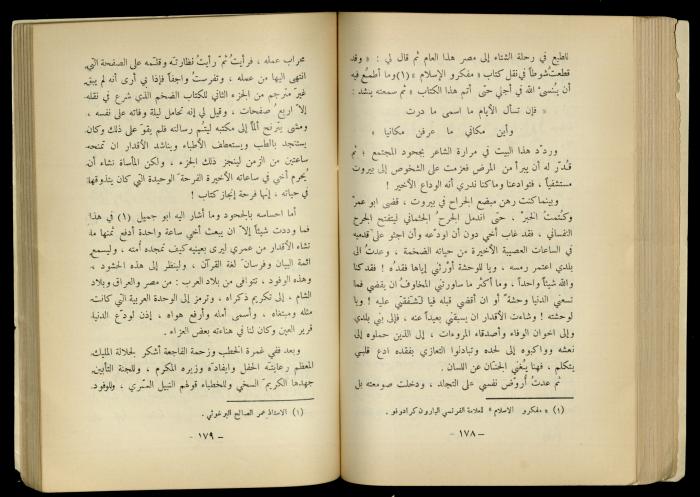 ناطبع في رحلة الشتاء إلى مصر هذا العام ثم قال لي : « وقد
قطعت شوطاً في نقل كتاب « مفكرو الإسلام » (١) وما أطمع فيه
أن يُنسىء الله في أجلي حتى أتم هذا الكتاب » ثم سمعته ينشد :
« فإن تسأل الأيام ما اسمى ما درت
وأين مكاني ما عرفن مكانيا »
وردّد هذا البيت في مرارة الشاعر بجحود المجتمع ؛ ثم
قُدّر له أن يبرأ من المرض فعزمت على الشخوص إلى بيروت
مستشفياً ، فتوادعنا وما كنا ندري أنه الوداع الأخير !
وبينما كنت رهن مبضع الجراح في بيروت ، قضى ابو عمر
وكُتمتُ الخبر ، حتى اندمل الجرحُ الجثماني ليتفتح الجرح
النفساني ، فقد غاب أخي دون أن اودّعه وأن اجثو على قدميه
في الساعات العصيبة الأخيرة من حياته الضخمة ، وعدتُ الى
بلدي أعتمر رمسه ، ويا للوحشة أورثني إياها فقدهُ ! فقد كنا
والله شيئاً واحداً ، وما أكثر ما ساورتني المخاوف ان يقضي فما
تسعني الدنيا وحشةً أو ان أقضي قبله فيا لشفقتي عليه ! ويا
لوحشته ! وشاءت الأقدار ان يسبقني بعيداً عنه ، فإلى بني بلدي
وإلى اخوان الوفاء وأصدقاء المروءات ، إلى الذين حملوه إلى
نعشه وواكبوه إلى لحده وتبادلوا التعازي بفقده ادع قلبي
يتكلم ، فهنا يُغني الجنان عن اللسان .
ثم عدتُ أروّض نفسي على التجلد ، ودخلت صومعته بل
(١) « مفكرو الاسلام » للعلامة الفرنسي البارون كرادوفو .
- ١٧٨ -
محراب عمله ، فرأيتُ ثمّ رأيتُ نظارته وقلمه على الصفحة التي
انتهى اليها من عمله ، وتفرست واجفاً فإذا بي أرى أنه لم يبق
غير مترجم من الجزء الثاني للكتاب الضخم الذي شرع في نقله
إلا اربع صفحات ، وقيل لي إنه تحامل ليلة وفاته على نفسه ،
ومشى يترنح ألماً إلى مكتبه ليتم رسالته فلم يقوَ على ذلك وكان
يستنجد بالطب ويستعطف الأطباء ويناشد الأقدار ان تمنحه
ساعتين من الزمن لينجز ذلك الجزء ، ولكن المأساة تشاء أن
يُحرم أخي في ساعاته الأخيرة الفرحة الوحيدة التي كان يتذوقها
في حياته ، إنها فرحة إنجاز كتاب !
أما احساسه بالجحود وما أشار اليه ابو جميل (١) في هذا
فما وددت شيئاً إلا ان يبعث أخي ساعة واحدة أدفع ثمنها ما
تشاء الأقدار من عمري ليرى بعينيه كيف تمجده أمته ، وليسمع
ائمة البيان وفرسان لغة القرآن ، ولينظر إلى هذه الحشود ،
وهذه الوفود ، تتوافى من بلاد العرب : من مصر والعراق وبلاد
الشام ، إلى تكريم ذكراه ، وترمز إلى الوحدة العربية التي كانت
مثله ومبتغاه ، وأسمى أمله وأرفع هواه ، إذن لودع الدنيا
قرير العين وكان لنا في هناءته بعض العزاء .
وبعد ففي غمرة الخطب وزحمة الفاجعة أشكر لجلالة المليك
المعظم رعايته الحفل وايفاده وزيره المكرم ، وللجنة التأبين
جهدها الكريم السخي وللخطباء قولهم النبيل العبقري ، وللوفود
(١) الاستاذ عمر الصالح البرغوثي .
- ١٧٩ -